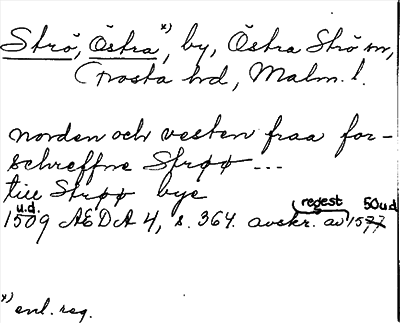 Strö, Östra *), by, Östra Strö sn,
Frosta hd, Malm. l.
norden och vesten fraa for-
schreffne Strøø ...
till Strøø bye
u.d. regest 50 u.d.
1509 AEDA 4, s. 364. avskr. av 1577
*) enl. reg.